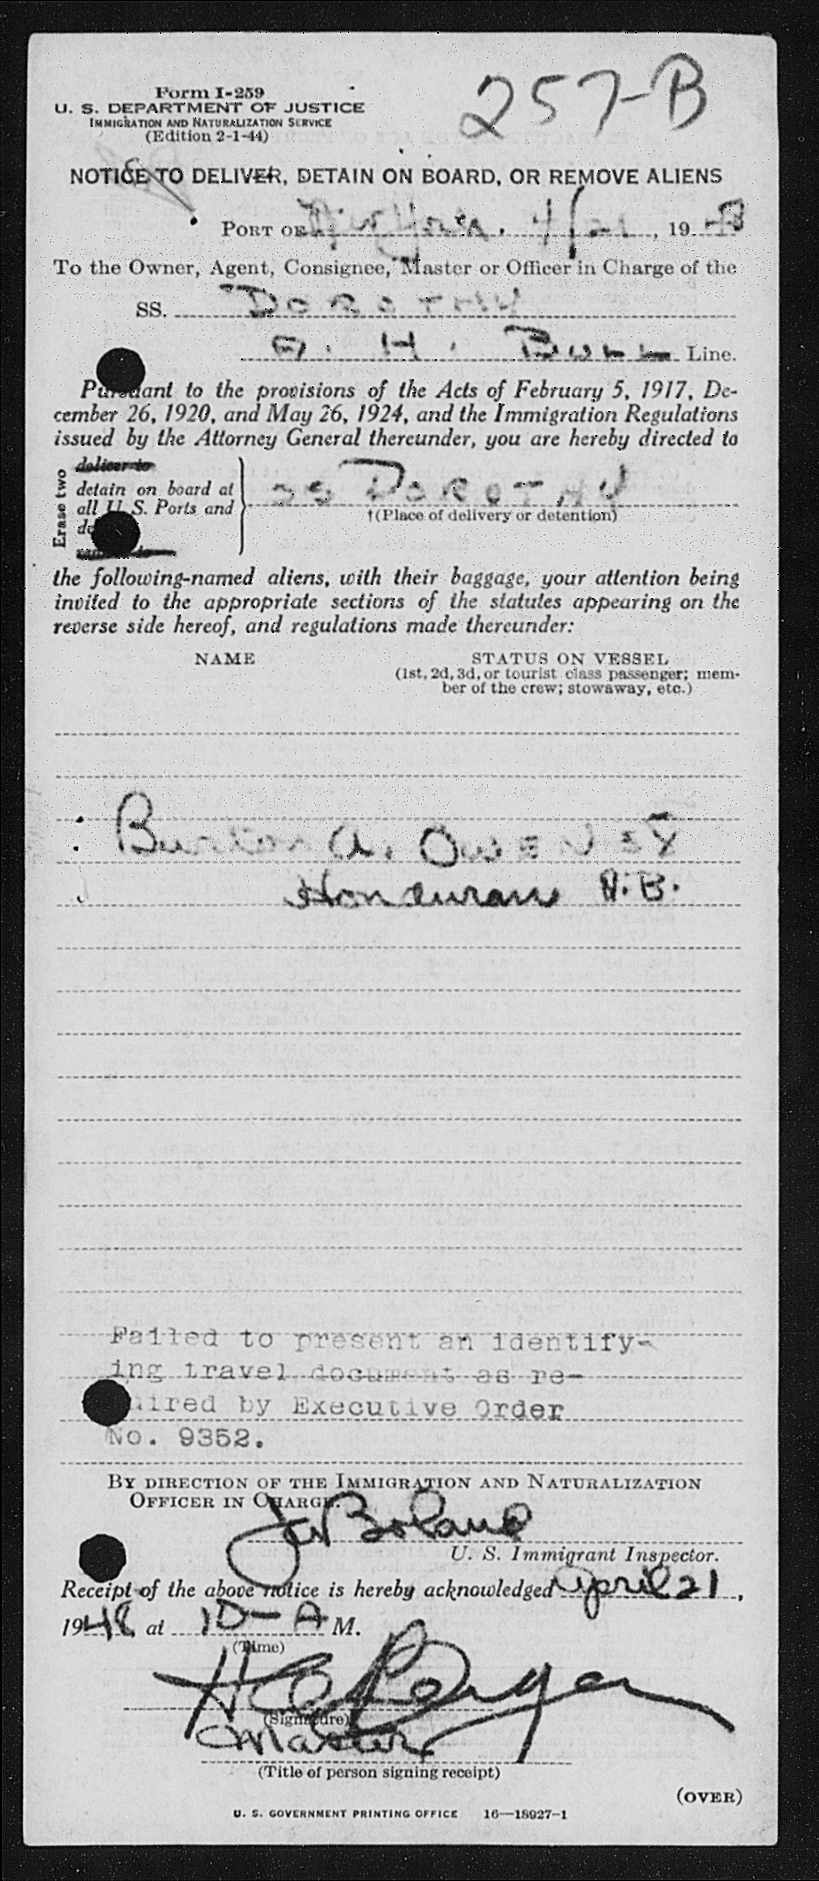 Form I-259
257-B
U. S. DEPARTMENT OF JUSTICE
IMMIGRATION AND NATURALIZATION SERVICE
(Edition 2-1-44)
NOTICE TO DELIVER, DETAIN ON BOARD, OR REMOVE ALIENS
PORT OF New York, 4/21, 1948
To the Owner, Agent, Consignee, Master or Officer in Charge of the
SS. DOROTHY
A. H. BULL Line.
Pursuant to the provisions of the Acts of February 5, 1917, De-
cember 26, 1920, and May 26, 1924, and the Immigration Regulations
issued by the Attorney General thereunder, you are hereby directed to
Erase two
deliver to
detain on board at
all U. S. Ports and
SS DOROTHY
†(Place of delivery or detention)
the following-named aliens, with their baggage, your attention being
invited to the appropriate sections of the statutes appearing on the
reverse side hereof, and regulations made thereunder:
NAME STATUS ON VESSEL
(1st, 2d, 3d, or tourist class passenger; mem-
ber of the crew; stowaway, etc.)
Burton A. OWEN
Honduran A.B.
Failed to present an identify-
ing travel document as re-
quired by Executive Order
No. 9352.
BY DIRECTION OF THE IMMIGRATION AND NATURALIZATION
OFFICER IN CHARGE.
Boland
U. S. Immigrant Inspector.
Receipt of the above notice is hereby acknowledged April 21,
1948 at 10-A M.
(Time)
(Signature)
Master
(Title of person signing receipt)
(OVER)
U. S. GOVERNMENT PRINTING OFFICE 16—18927-1